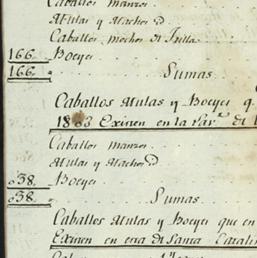 Caballos manzos.
Mulas y Machos id
Caballos mochos di Trilla
166 Boeyes
166 Sumas.
Caballos Mulas y Boeyes q.
1803 Exinen en la Par.^a di
Caballos manzos.
Mulas y Machos id
038. Boeyes
038. Sumas
Caballos Mulas y Boeyes que en
Exinen en era di Santa Catalin